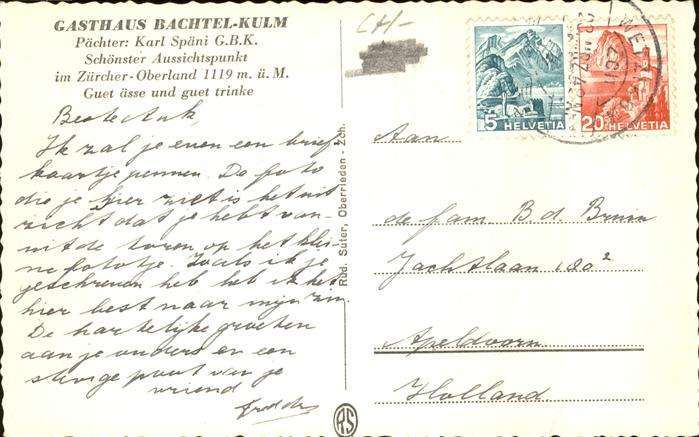 GASTHAUS BACHTEL-KULM
Pächter: Karl Späni G.B.K.
Schönster Aussichtspunkt
im Zürcher-Oberland 1119 m. ü. M.
Guet ässe und guet trinke
Beste Ank,
Ik zal je even een brief
kaartje pennen. De foto
die je hier ziet is het uit
zicht dat je hebt van-
uit de toren op het klei-
ne fototje. Zoals ik je
geschreven heb heb ik het
hier best naar mijn zin.
De hartelijke groeten
aan je ouders en een
stevige poot van je
vriend
Rud. Suter, Oberrieden - Zch.
RS
5 HELVETIA
20 HELVETIA
Aan
de fam. B. d. Bruin
Jachtlaan 180²
Apeldoorn
Holland